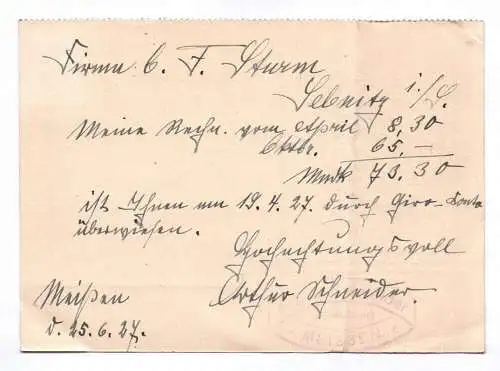 Firma C. F. Sturm
Sebnitz i./S.
Meine Rechn. vom April 8,30
Oktbr. 65,—
Mark 73.30
ist Ihnen am 19.4.27. durch Giro-Konto
überwiesen.
Hochachtungsvoll
Arthur Schneider.
Meißen
d. 25.6.27.